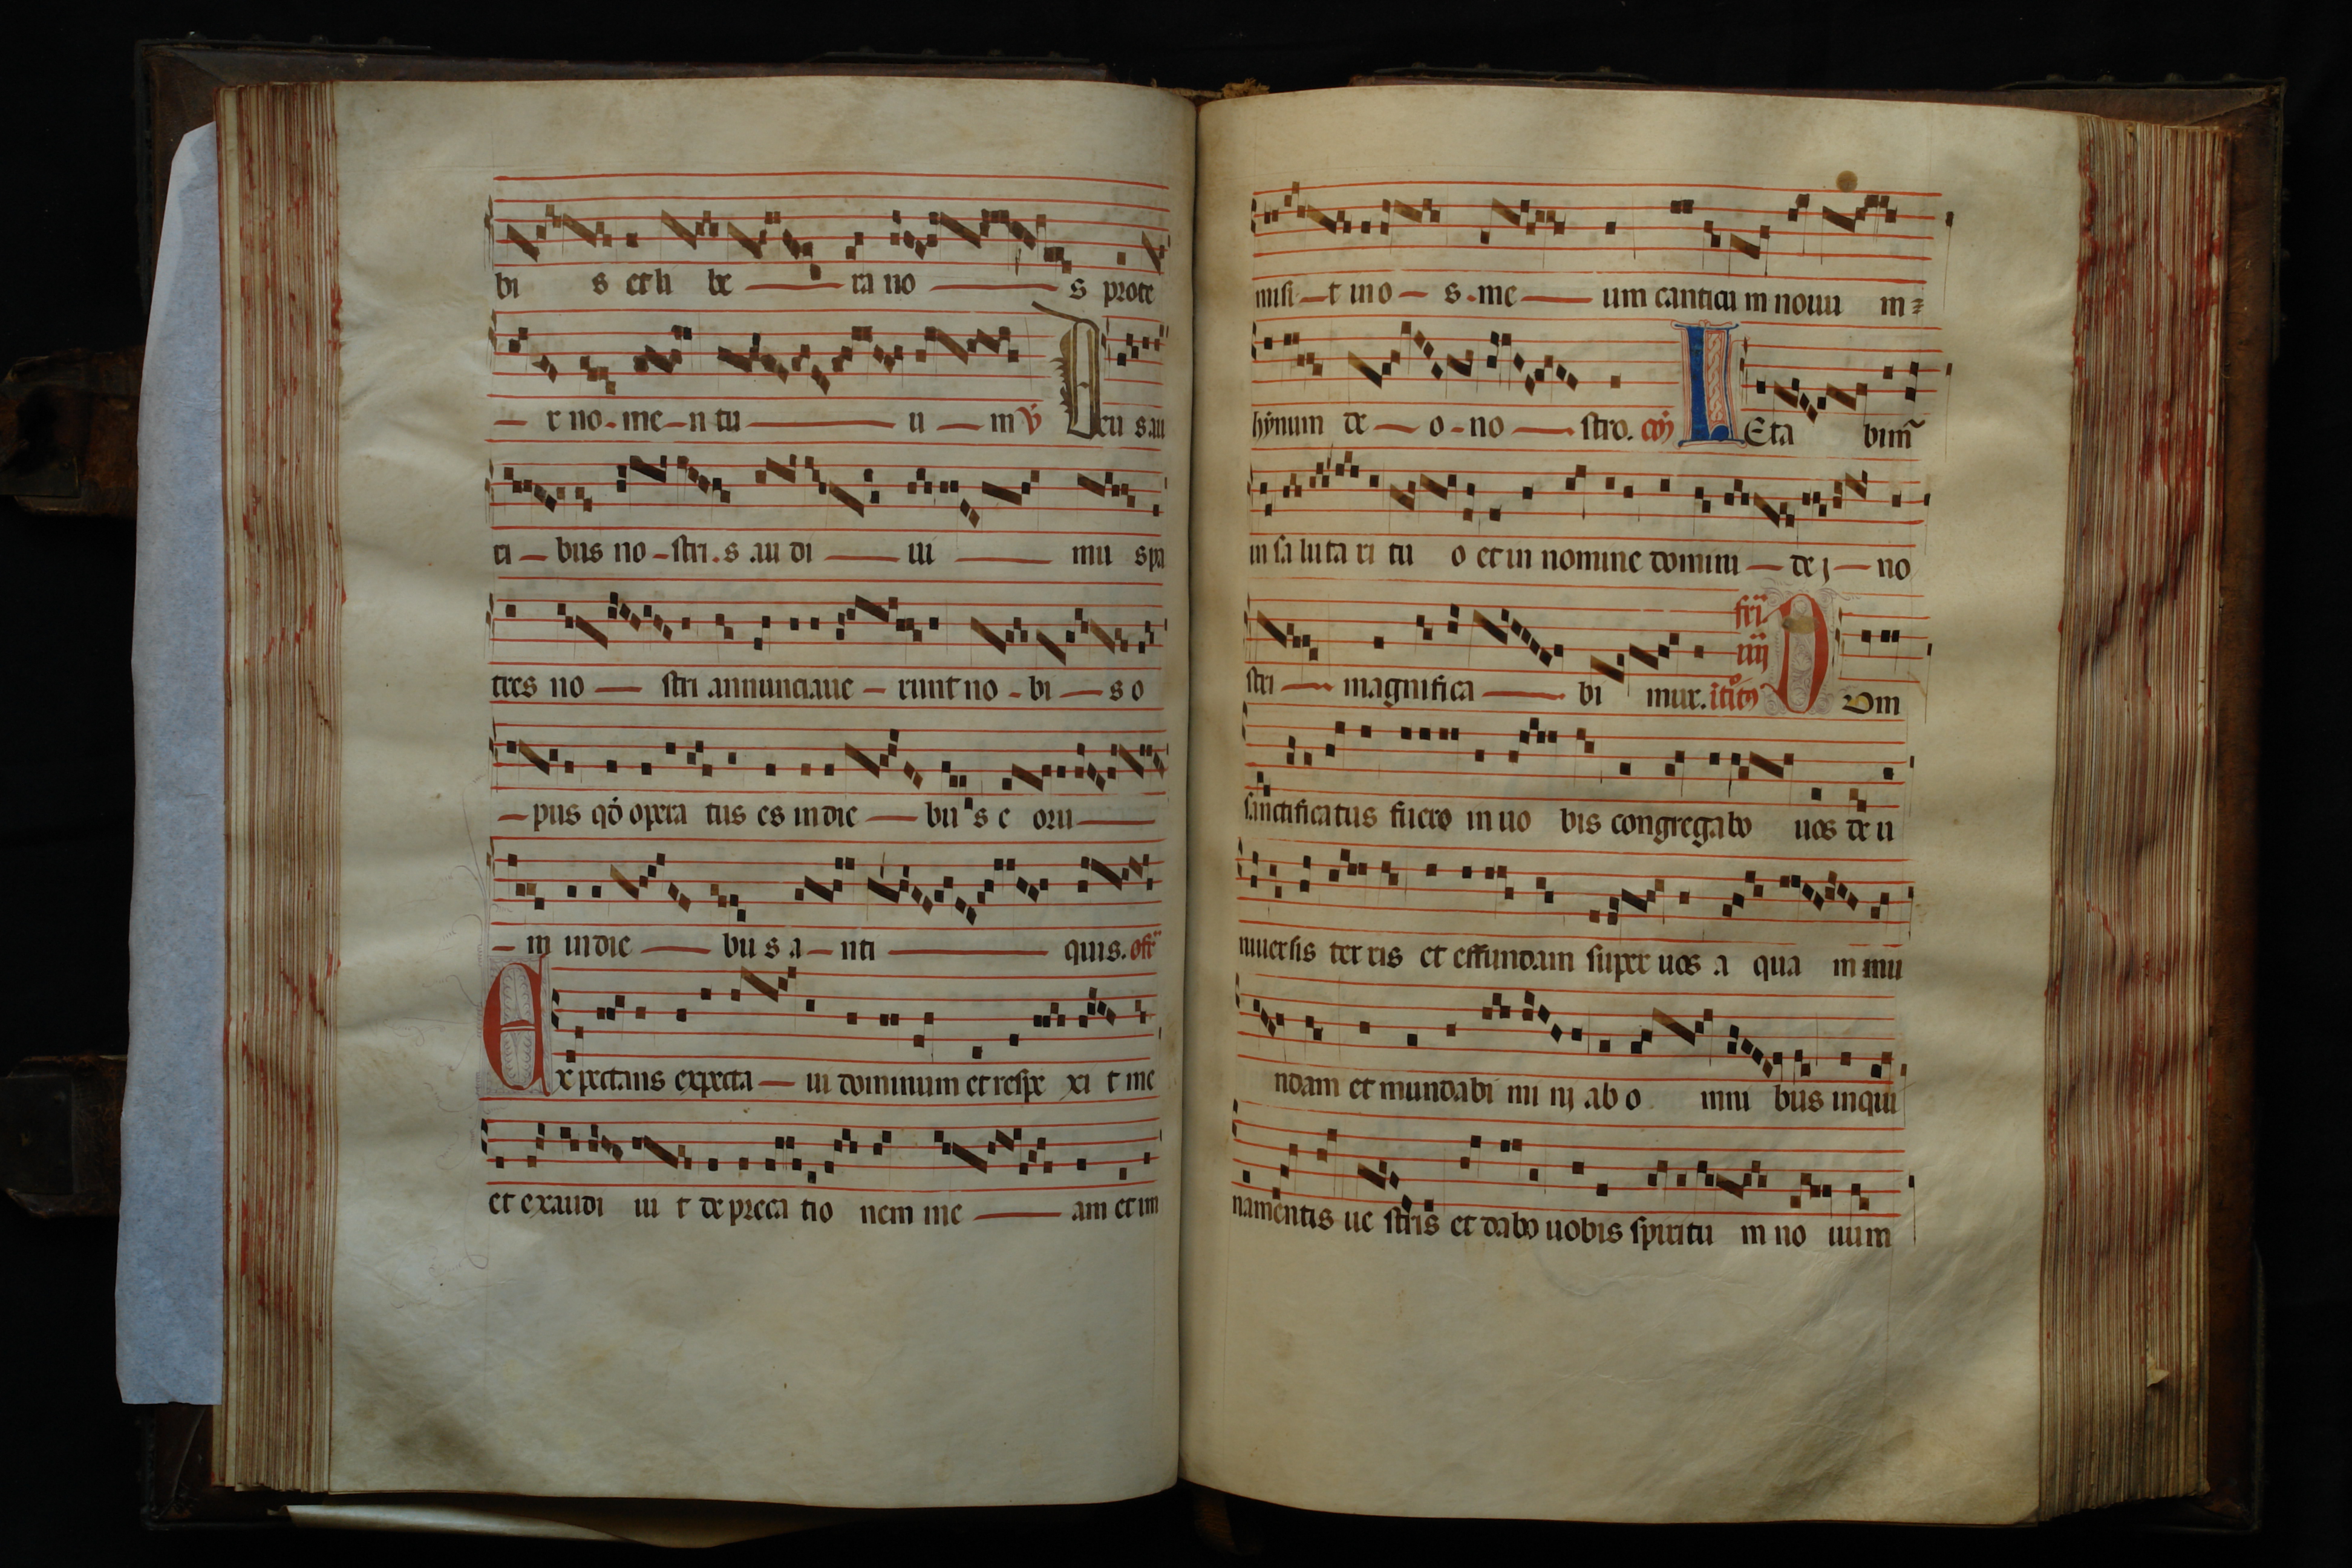 bi s et li be ra no s prote
r no me n tu u m ℣ Deu s au
ri bus no stri s au di ui mu s pa
tres no stri annunciaue runt no bi s o
pus qđ opera tus es in die bu s e oru
m in die bu s a nti quis. off
Expectans expecta ui dominum et respe xi t me
et exaudi ui t depreca tio nem me am et im
misi t in o s me um canticu m nouu m
hẏmnum de o no stro. coȳ LEta bim
in sa luta ri tu o et in nomine domini de j no
stri magnifica bi mur. fr̄i iiij itr̄o Dvm
sanctificatus fuero in uo bis congregabo uos de u
niuersis ter ris et effundam super uos a qua m mu
ndam et mundabi mi nj ab o mni bus inqui
namentis ue stris et dabo uobis spiritu m no uum